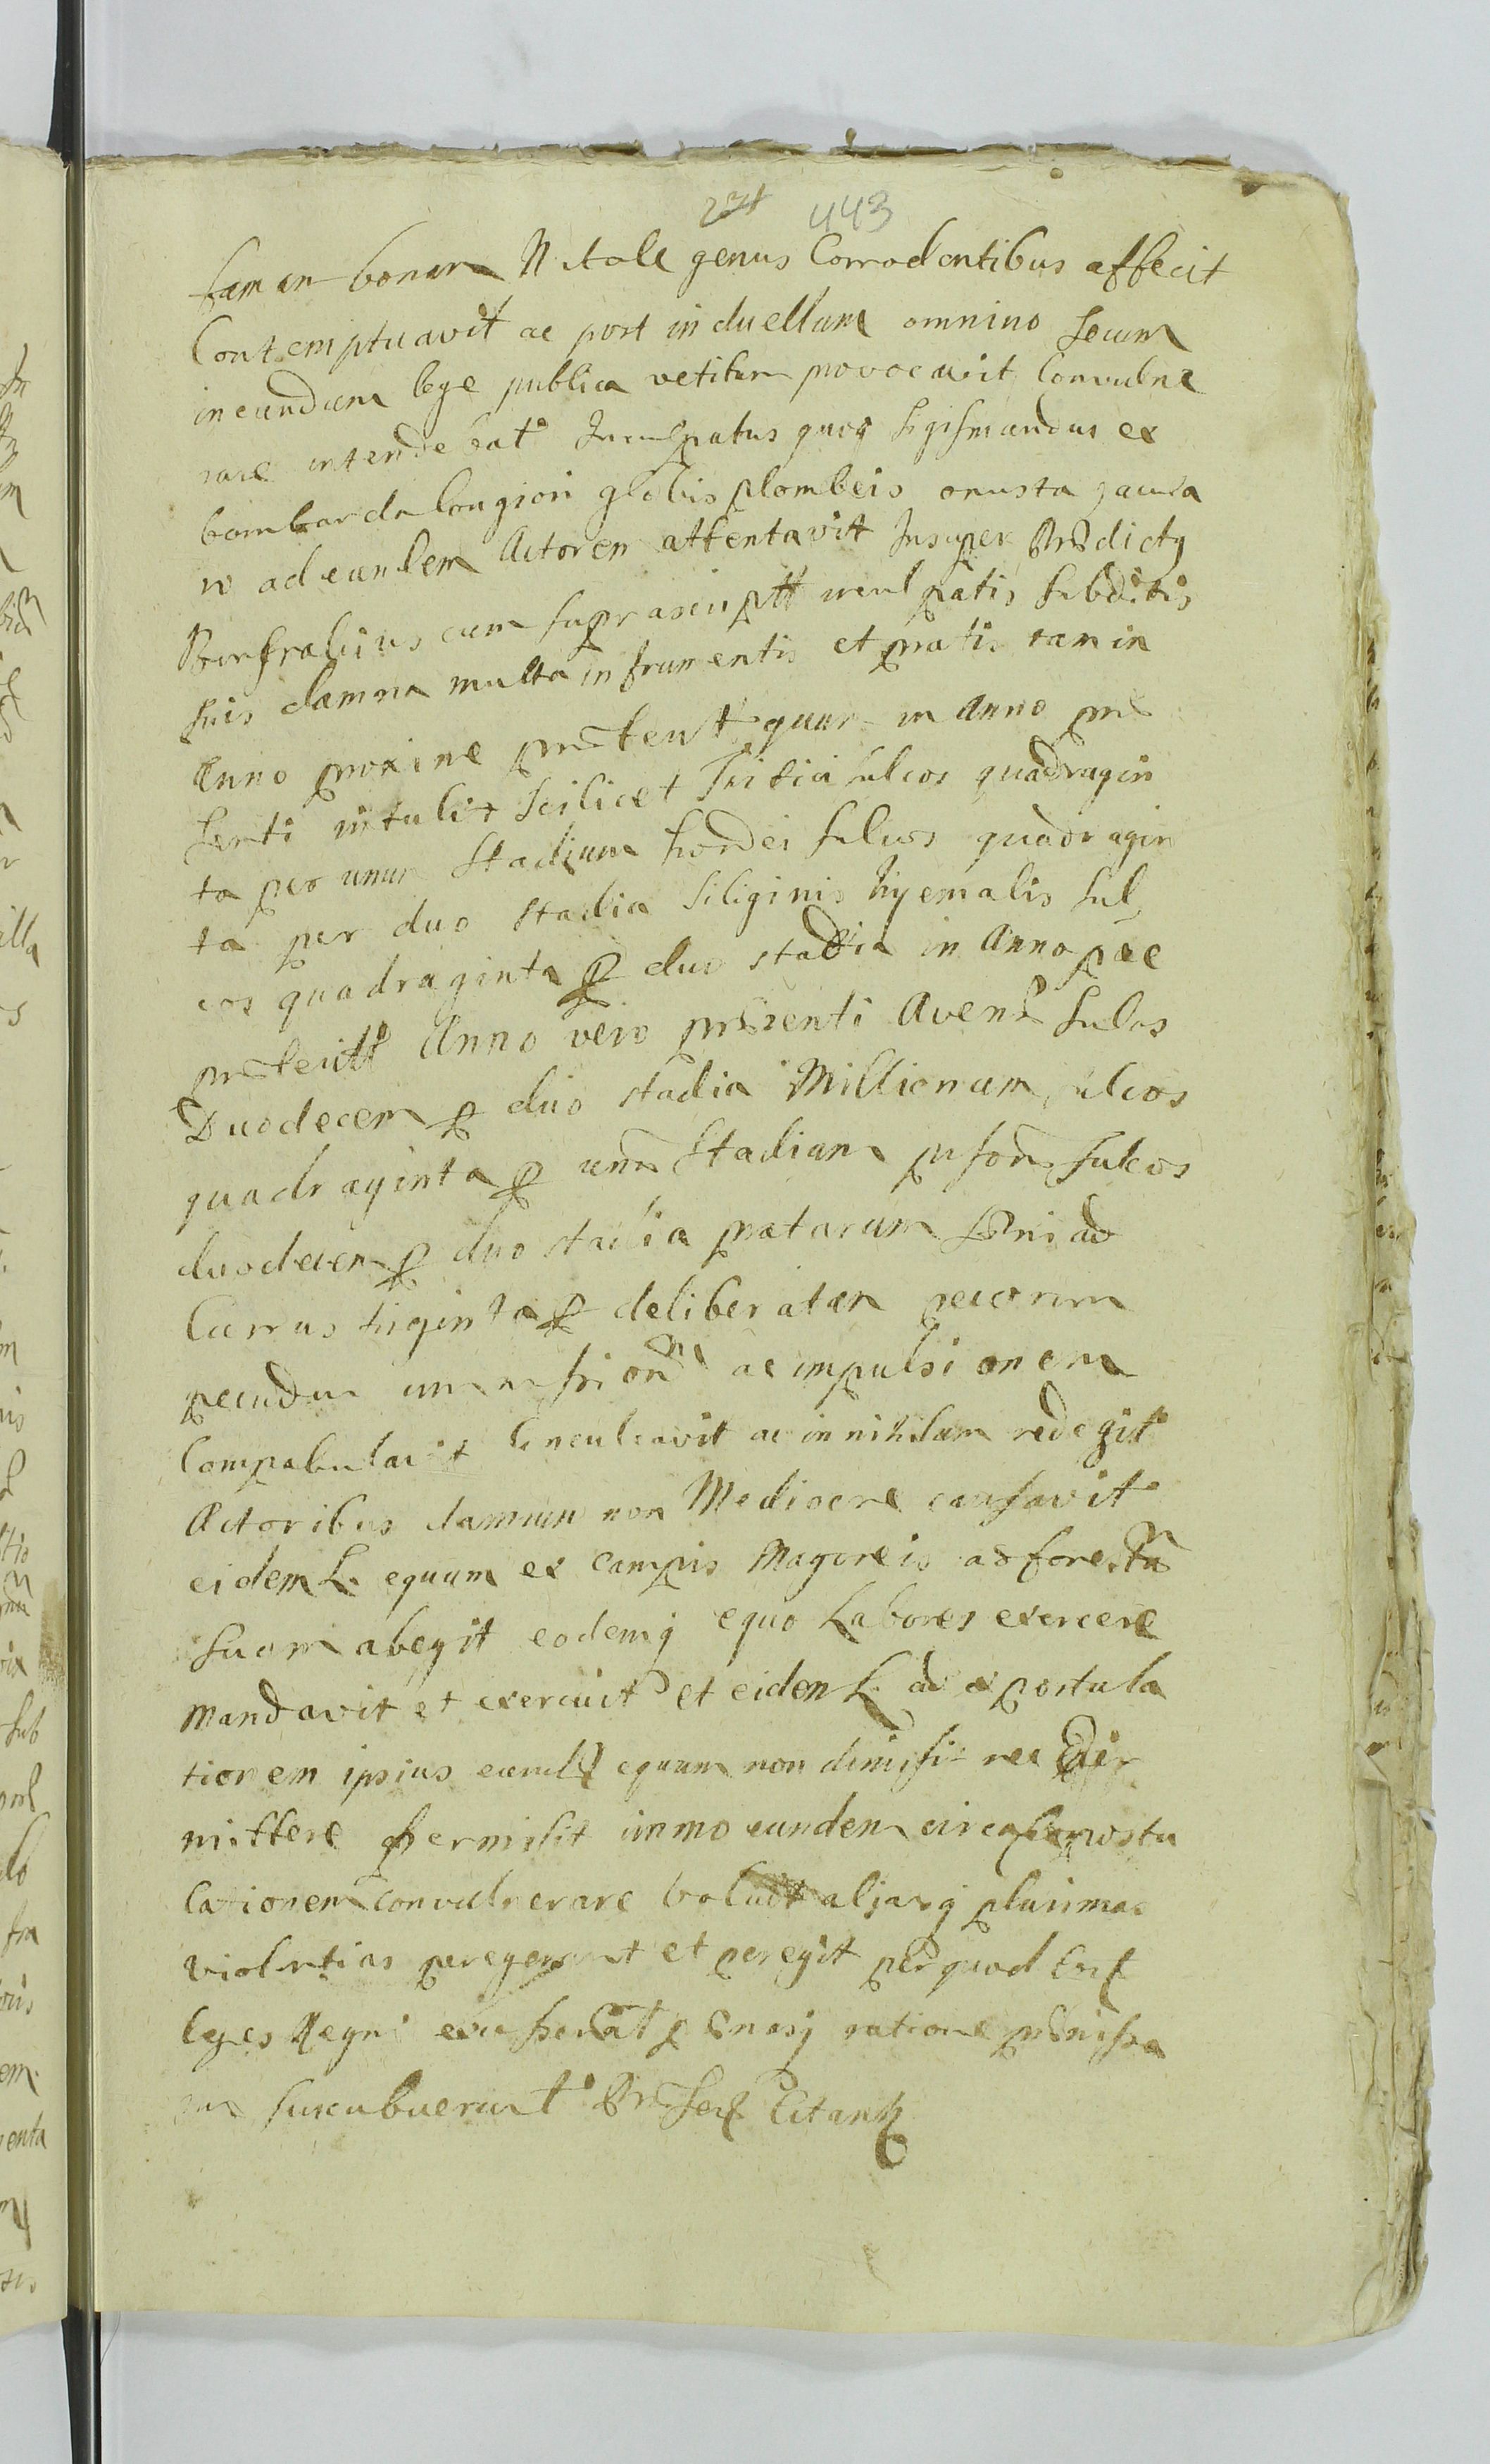 443
famam bonam N itale genus Corrodentibus affecit
Contemptuavit ac post in duellum omnino secum
ineundum lege publica vetitum provocavit Convulne
rare intendebat Inculpatus quoq Sigismundus ex
bombarda longiori globis plombeis onusta jacula
ri ad eundem Actorem attentavit Insuper Prædictq
cum suprascriptt inculpatis subditis
suis damna multa in frumentis et pratis tam in
Anno proxime præterit quam in Anno præ
senti intulit scilicet Tritici sulcos quadragin
ta per unum stadium hordei sulcos quadragin
ta per duo stadia siliginis hyemalis sul
cos quadraginta p duo stadia in Anno præ
præteritt Anno vero præsenti Avenæ sulcos
Duodecem p duo stadia sulcos
quadraginta p unu Stadium pisoru sulcos
duodecem p duo stadia pratarum fæni ad
Currus triginta p deliberatam pecorum
pecudum ac impulsionem
Compabulavit Conculcavit ac in nihilum redegit
Actoribus damnum non Mediocre causavit
eidem L. equum ex campis Magoreis ad
suam abegit eodemq equo Labores exercere
mandavit et exercuit et eidem L. ad expostula
tionem ipsius equum non dimisit nec dir
mittere permisit immo eundem circa expostu
lationem convulnerare voluit aljasq plurimas
violentias peregerunt et peregit per quod
leges Regni pænasq ratione præmissa
rum sucubuerunt Citant